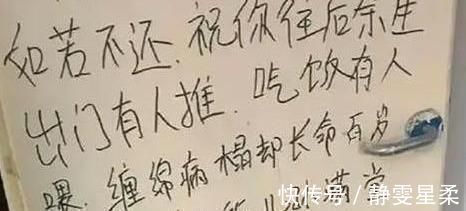 如若不还.祝你往后余生
出门有人推.吃饭有人
喂.缠绵病榻却长命百岁
满堂
快传号/静雯星柔